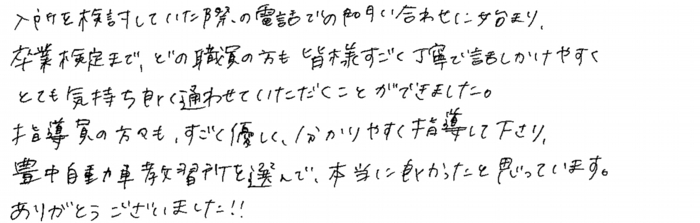 入所を検討していた際の電話での問い合わせに始まり、
卒業検定まで、どの職員の方も皆様すごく丁寧で話しかけやすく
とても気持ち良く通わせていただくことができました。
指導員の方々も、すごく優しく、分かりやすく指導して下さり、
豊中自動車教習所を選んで、本当に良かったと思っています。
ありがとうございました!!